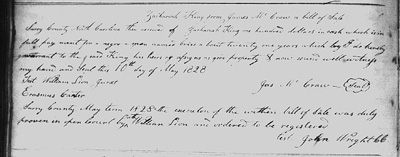 Zachariah King from James McCraw a bill of Sale
Surry County North Carolina the sum of Zachariah King six hundred dollars in cash which is in
full payment for a negro man named brice about twenty one years which boy I do hereby
warrant to the said King his heirs & assigns a good property & now sound will witness
my hand and Seal this 10th day of May 1828
Test William Lion Jurat Jas. McCraw (Seal)
Erasmus Cotter
Surry County May term 1828 the execution of the within bill of Sale was duly
proven in open Court by William Lion and ordered to be registered
Test John Wright CC